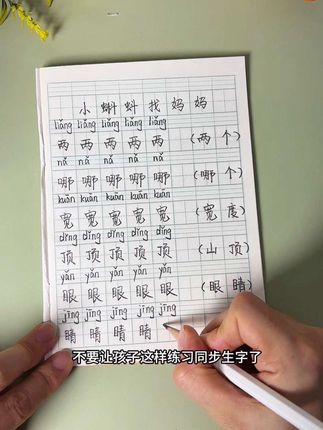 小蝌蚪找妈妈
liǎng liǎng liǎng liǎng liǎng
两 两 两 两 两 (两个)
nǎ nǎ nǎ nǎ nǎ
哪 哪 哪 哪 哪 (哪个)
kuān kuān kuān kuān kuān
宽 宽 宽 宽 宽 (宽度)
dǐng dǐng dǐng dǐng dǐng
顶 顶 顶 顶 顶 (山顶)
yǎn yǎn yǎn yǎn yǎn
眼 眼 眼 眼 眼 (眼睛)
jīng jīng jīng jīng jīng
睛 睛 睛 睛
不要让孩子这样练习同步生字了